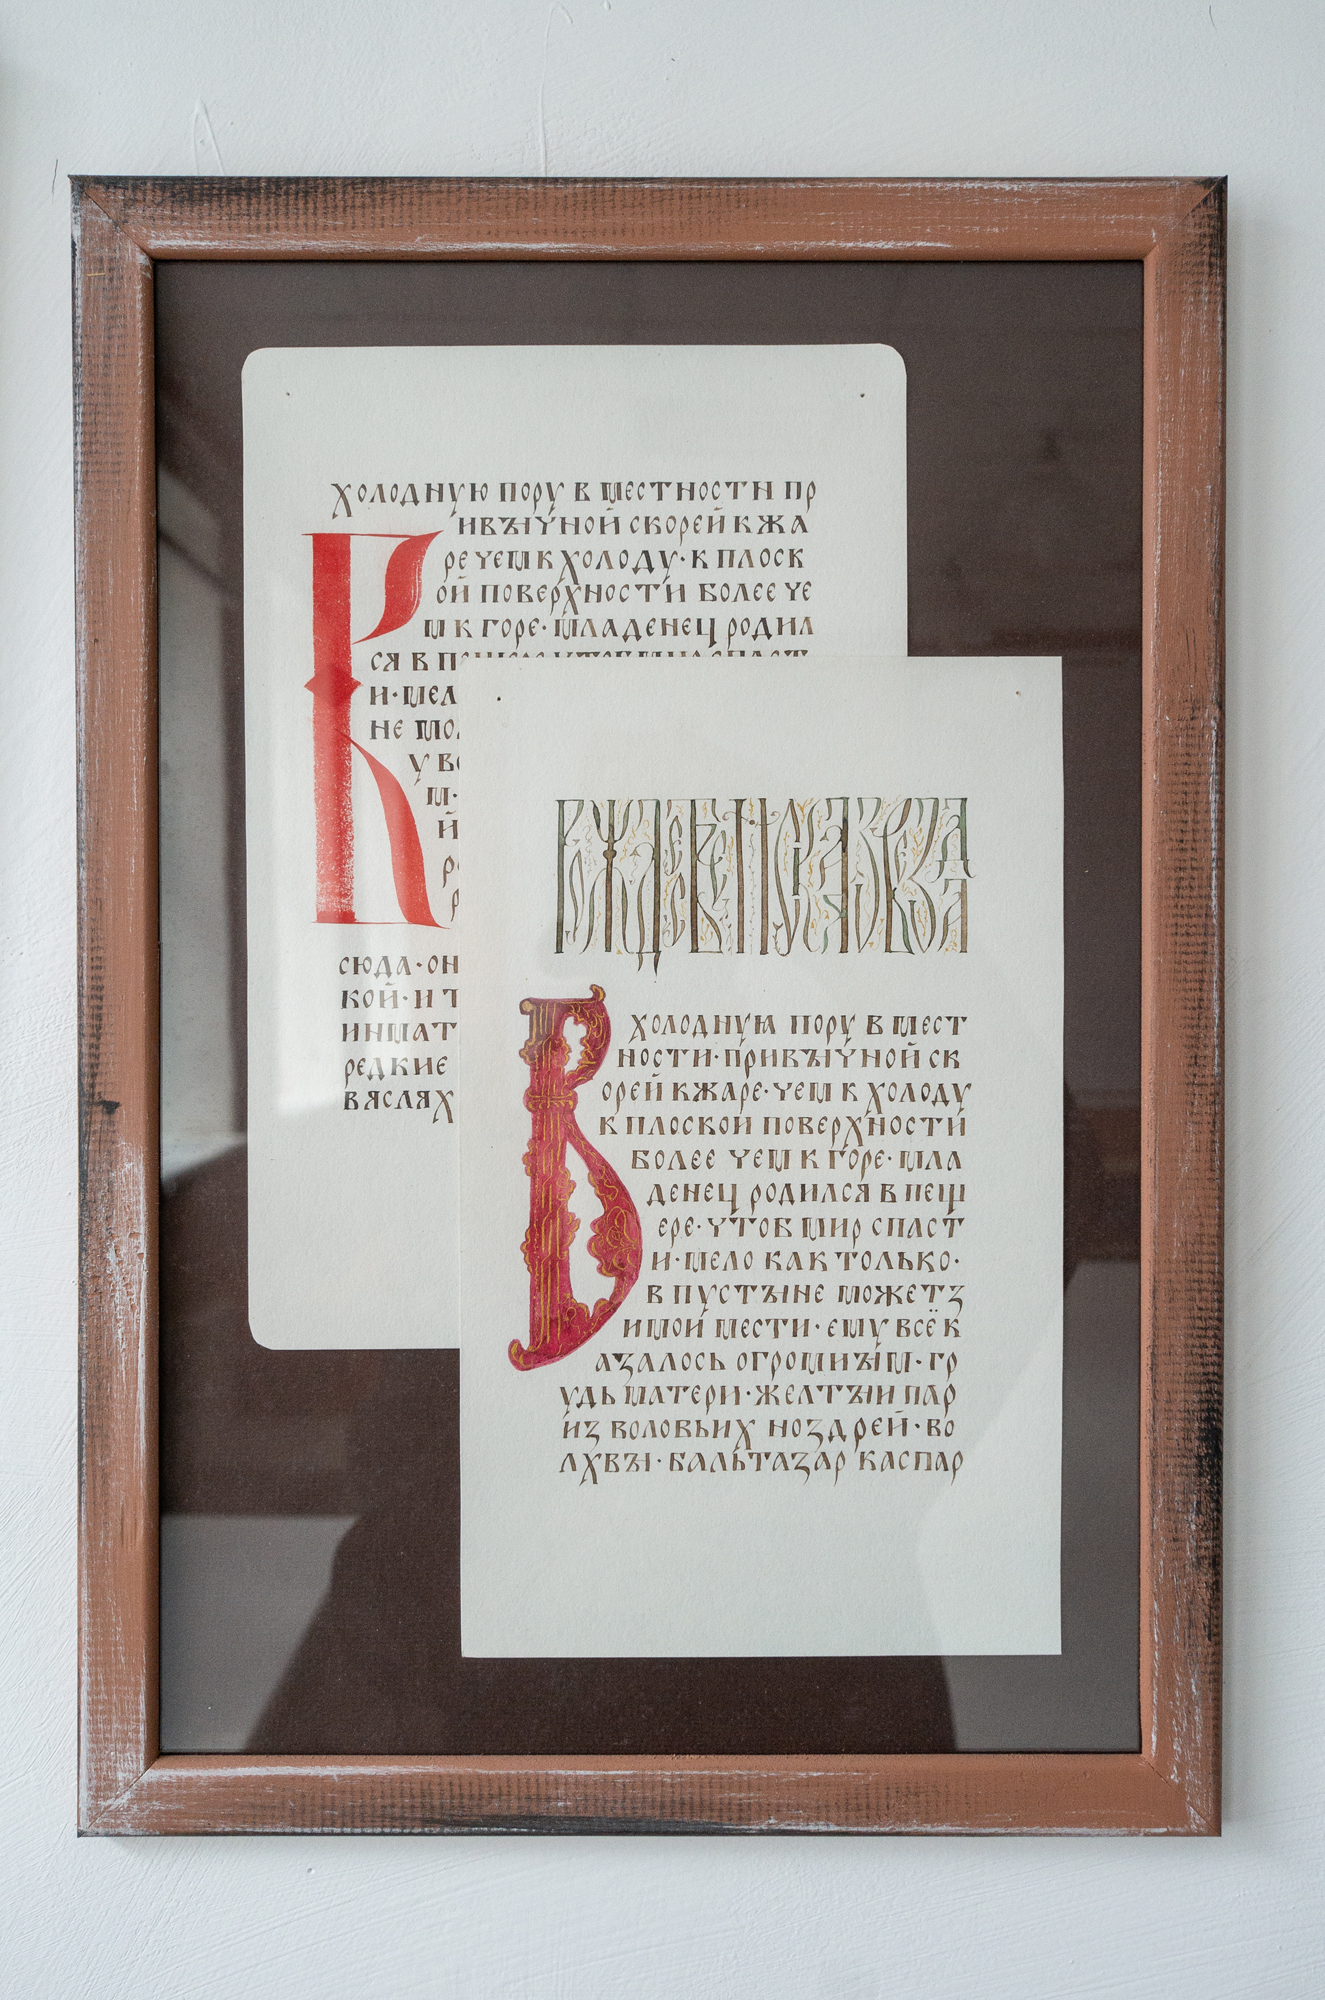 В
ХОЛОДНУЮ ПОРУ В МЕСТНОСТИ ПР
ИВЪІЧНОЙ СКОРЕЙ К ЖА
РЕ ЧЕМ К ХОЛОДУ· К ПЛОСК
ОЙ ПОВЕРХНОСТИ БОЛЕЕ ЧЕ
М К ГОРЕ· МЛАДЕНЕЦ РОДИЛ
СЯ В
И·МЕЛ
НЕ
У
М·
Й
СЮДА·ОН
КОЙ·И
ИНМАТ
РЕДКИЕ
ВЯСЛЯХ
В
ХОЛОДНУЮ ПОРУ В МЕСТ
НОСТИ·ПРИВЪІЧНОЙ СК
ОРЕЙ К ЖАРЕ·ЧЕМ К ХОЛОДУ
К ПЛОСКОЙ ПОВЕРХНОСТИ
БОЛЕЕ ЧЕМ К ГОРЕ·МЛА
ДЕНЕЦ РОДИЛСЯ В ПЕЩ
ЕРЕ·ЧТОБ МИР СПАСТ
И·МЕЛО КАК ТОЛЬКО·
В ПУСТЪІНЕ МОЖЕТ З
ИМОЙ МЕСТИ·ЕМУ ВСЁ К
АЗАЛОСЬ ОГРОМНЪІМ·ГР
УДЬ МАТЕРИ·ЖЕЛТЪІЙ ПАР
ИЗ ВОЛОВЬИХ НОЗДРЕЙ·ВО
ЛХВЪІ·БАЛЬТАЗАР КАСПАР